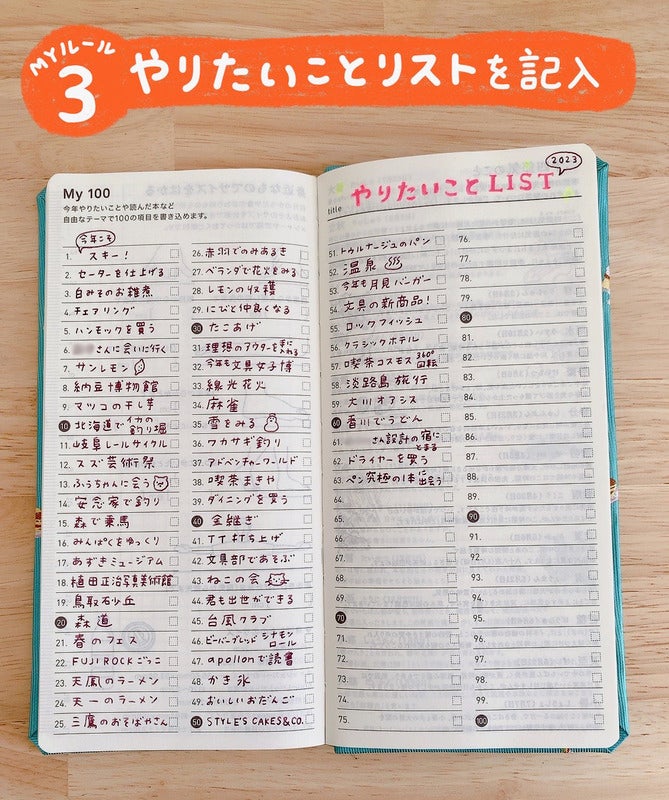 MYルール
3
やりたいことリストを記入
My 100
今年やりたいことや読んだ本など
自由なテーマで100の項目を書き込めます。
今年こそ
1. スキー!
2. セーターを仕上げる
3. 白みそのお雑煮
4. チェアリング
5. ハンモックを買う
6. さんに会いに行く
7. サンレモン
8. 納豆博物館
9. マツコの干し芋
10 北海道でイカの釣り堀
11. 岐阜レールサイクル
12. スズ芸術祭
13. ふうちゃんに会う
14. 安念家で釣り
15. 森で乗馬
16. みんぱくをゆっくり
17. あずきミュージアム
18. 植田正治写真美術館
19. 鳥取石少丘
20 森道
21. 春のフェス
22. FUJI ROCKごっこ
23. 天鳳のラーメン
24. 天一のラーメン
25. 三鷹のおそばやさん
26. 赤羽でのみあるき
27. ベランダで花火をみる
28. レモンの収穫
29. にびと仲良くなる
30 たこあげ
31. 理想のアウターを手に入れる
32. 今年も文具女子博
33. 線光花火
34. 麻雀
35. 雪をみる
36. ワカサギ釣り
37. アドベンチャーワールド
38. 喫茶まきや
39. ダイニングを買う
40 金継ぎ
41. TT打ち上げ
42. 文具部であそぶ
43. ねこの会
44. 君も出世ができる
45. 台風クラブ
46. ビーバーブレッド シナモンロール
47. apollonで読書
48. かき氷
49. おいしいおだんご
50 STYLE'S CAKES&CO.
2023
title やりたいことLIST
51. トゥルナージュのパン
52. 温泉
53. 今年も月見バーガー
54. 文具の新商品!
55. ロックフィッシュ
56. クラシックホテル
57. 喫茶コスモス 360°回転
58. 淡路島旅行
59. 大川オアシス
60 香川でうどん
61. さん設計の宿にとまる
62. ドライヤーを買う
63. ペン究極の1本に出会う
64.
65.
66.
67.
68.
69.
70
71.
72.
73.
74.
75.
76.
77.
78.
79.
80
81.
82.
83.
84.
85.
86.
87.
88.
89.
90
91.
92.
93.
94.
95.
96.
97.
98.
99.
100